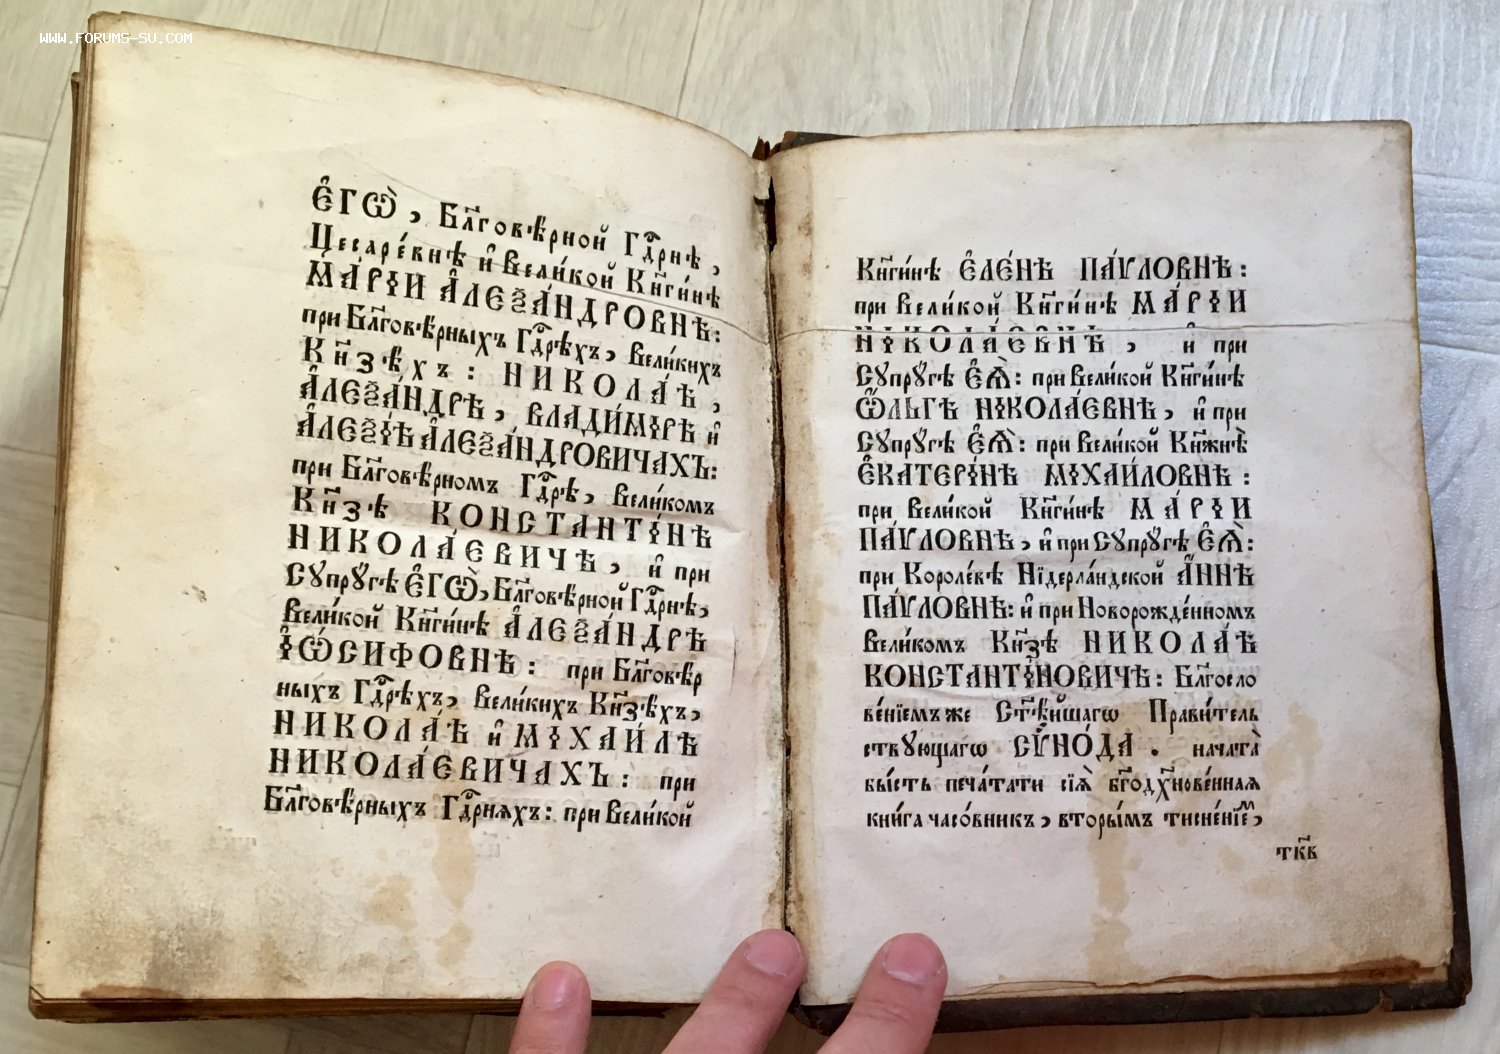 WWW.FORUMS-SU.COM
Є҆ГѠ̀, Бл҃говѣ́рной Гдⷭ҇рнѣ,
Цесаре́внѣ и҆ Вели́кой Кн҃ги́нѣ
МА́РІИ А҆ЛЕѮА́НДРОВНѢ:
при Бл҃говѣ́рныхъ Гдⷭ҇рѣхъ, Вели́кихъ
Кн҃зѣхъ: НИКОЛА́Ѣ,
А҆ЛЕѮА́НДРѢ, ВЛАДИ́МІРѢ и҆
А҆ЛЕѮІ́Ѣ А҆ЛЕѮА́НДРОВИЧАХЪ:
при Бл҃говѣ́рномъ Гдⷭ҇рѣ, Вели́комъ
Кн҃зѣ КОНСТАНТІ́НѢ
НИКОЛА́ЕВИЧѢ, и҆ при
Сꙋпрꙋ́гѣ Є҆ГѠ̀, Бл҃говѣ́рной Гдⷭ҇рнѣ,
Вели́кой Кн҃ги́нѣ А҆ЛЕѮА́НДРѢ
І҆Ѡ́СИФОВНѢ: при Бл҃говѣ́р
ныхъ Гдⷭ҇рѣхъ, Вели́кихъ Кн҃зѣхъ,
НИКОЛА́Ѣ и҆ МІХАИ́ЛѢ
НИКОЛА́ЕВИЧАХЪ: при
Бл҃говѣ́рныхъ Гдⷭ҇рняхъ: при Вели́кой
Кн҃ги́нѣ Є҆ЛЕ́НѢ ПА́ѴЛОВНѢ:
при Вели́кой Кн҃ги́нѣ МА́РІИ
НІКОЛА́ЕВНѢ, и҆ при
Сꙋпрꙋ́гѣ Є҆Ѧ̀: при Вели́кой Кн҃ги́нѣ
Ѽ́ЛЬГѢ НІКОЛА́ЕВНѢ, и҆ при
Сꙋпрꙋ́гѣ Є҆Ѧ̀: при Вели́кой Кн҃жнѣ̀
Є҆КАТЕРІ́НѢ МІХАИ́ЛОВНѢ:
при Вели́кой Кн҃ги́нѣ МА́РІИ
ПА́ѴЛОВНѢ, и҆ при Сꙋпрꙋ́гѣ Є҆Ѧ̀:
при Короле́вѣ Нїдерла́ндской А҆́ННѢ
ПА́ѴЛОВНѢ: и҆ при Новорожде́нномъ
Вели́комъ Кн҃зѣ НИКОЛА́Ѣ
КОНСТАНТІ́НОВИЧѢ: Бл҃госло
ве́нїемъ же Ст҃ѣ́йшагѡ Прави́тель
ствꙋющагѡ СѴНО́ДА. начата̀
бы́сть печа́тати сїѧ̀ бг҃одꙋ҃хнове́нная
кни́га часо́вникъ, вторы́мъ тисне́нїемⷨ,
тк҃в